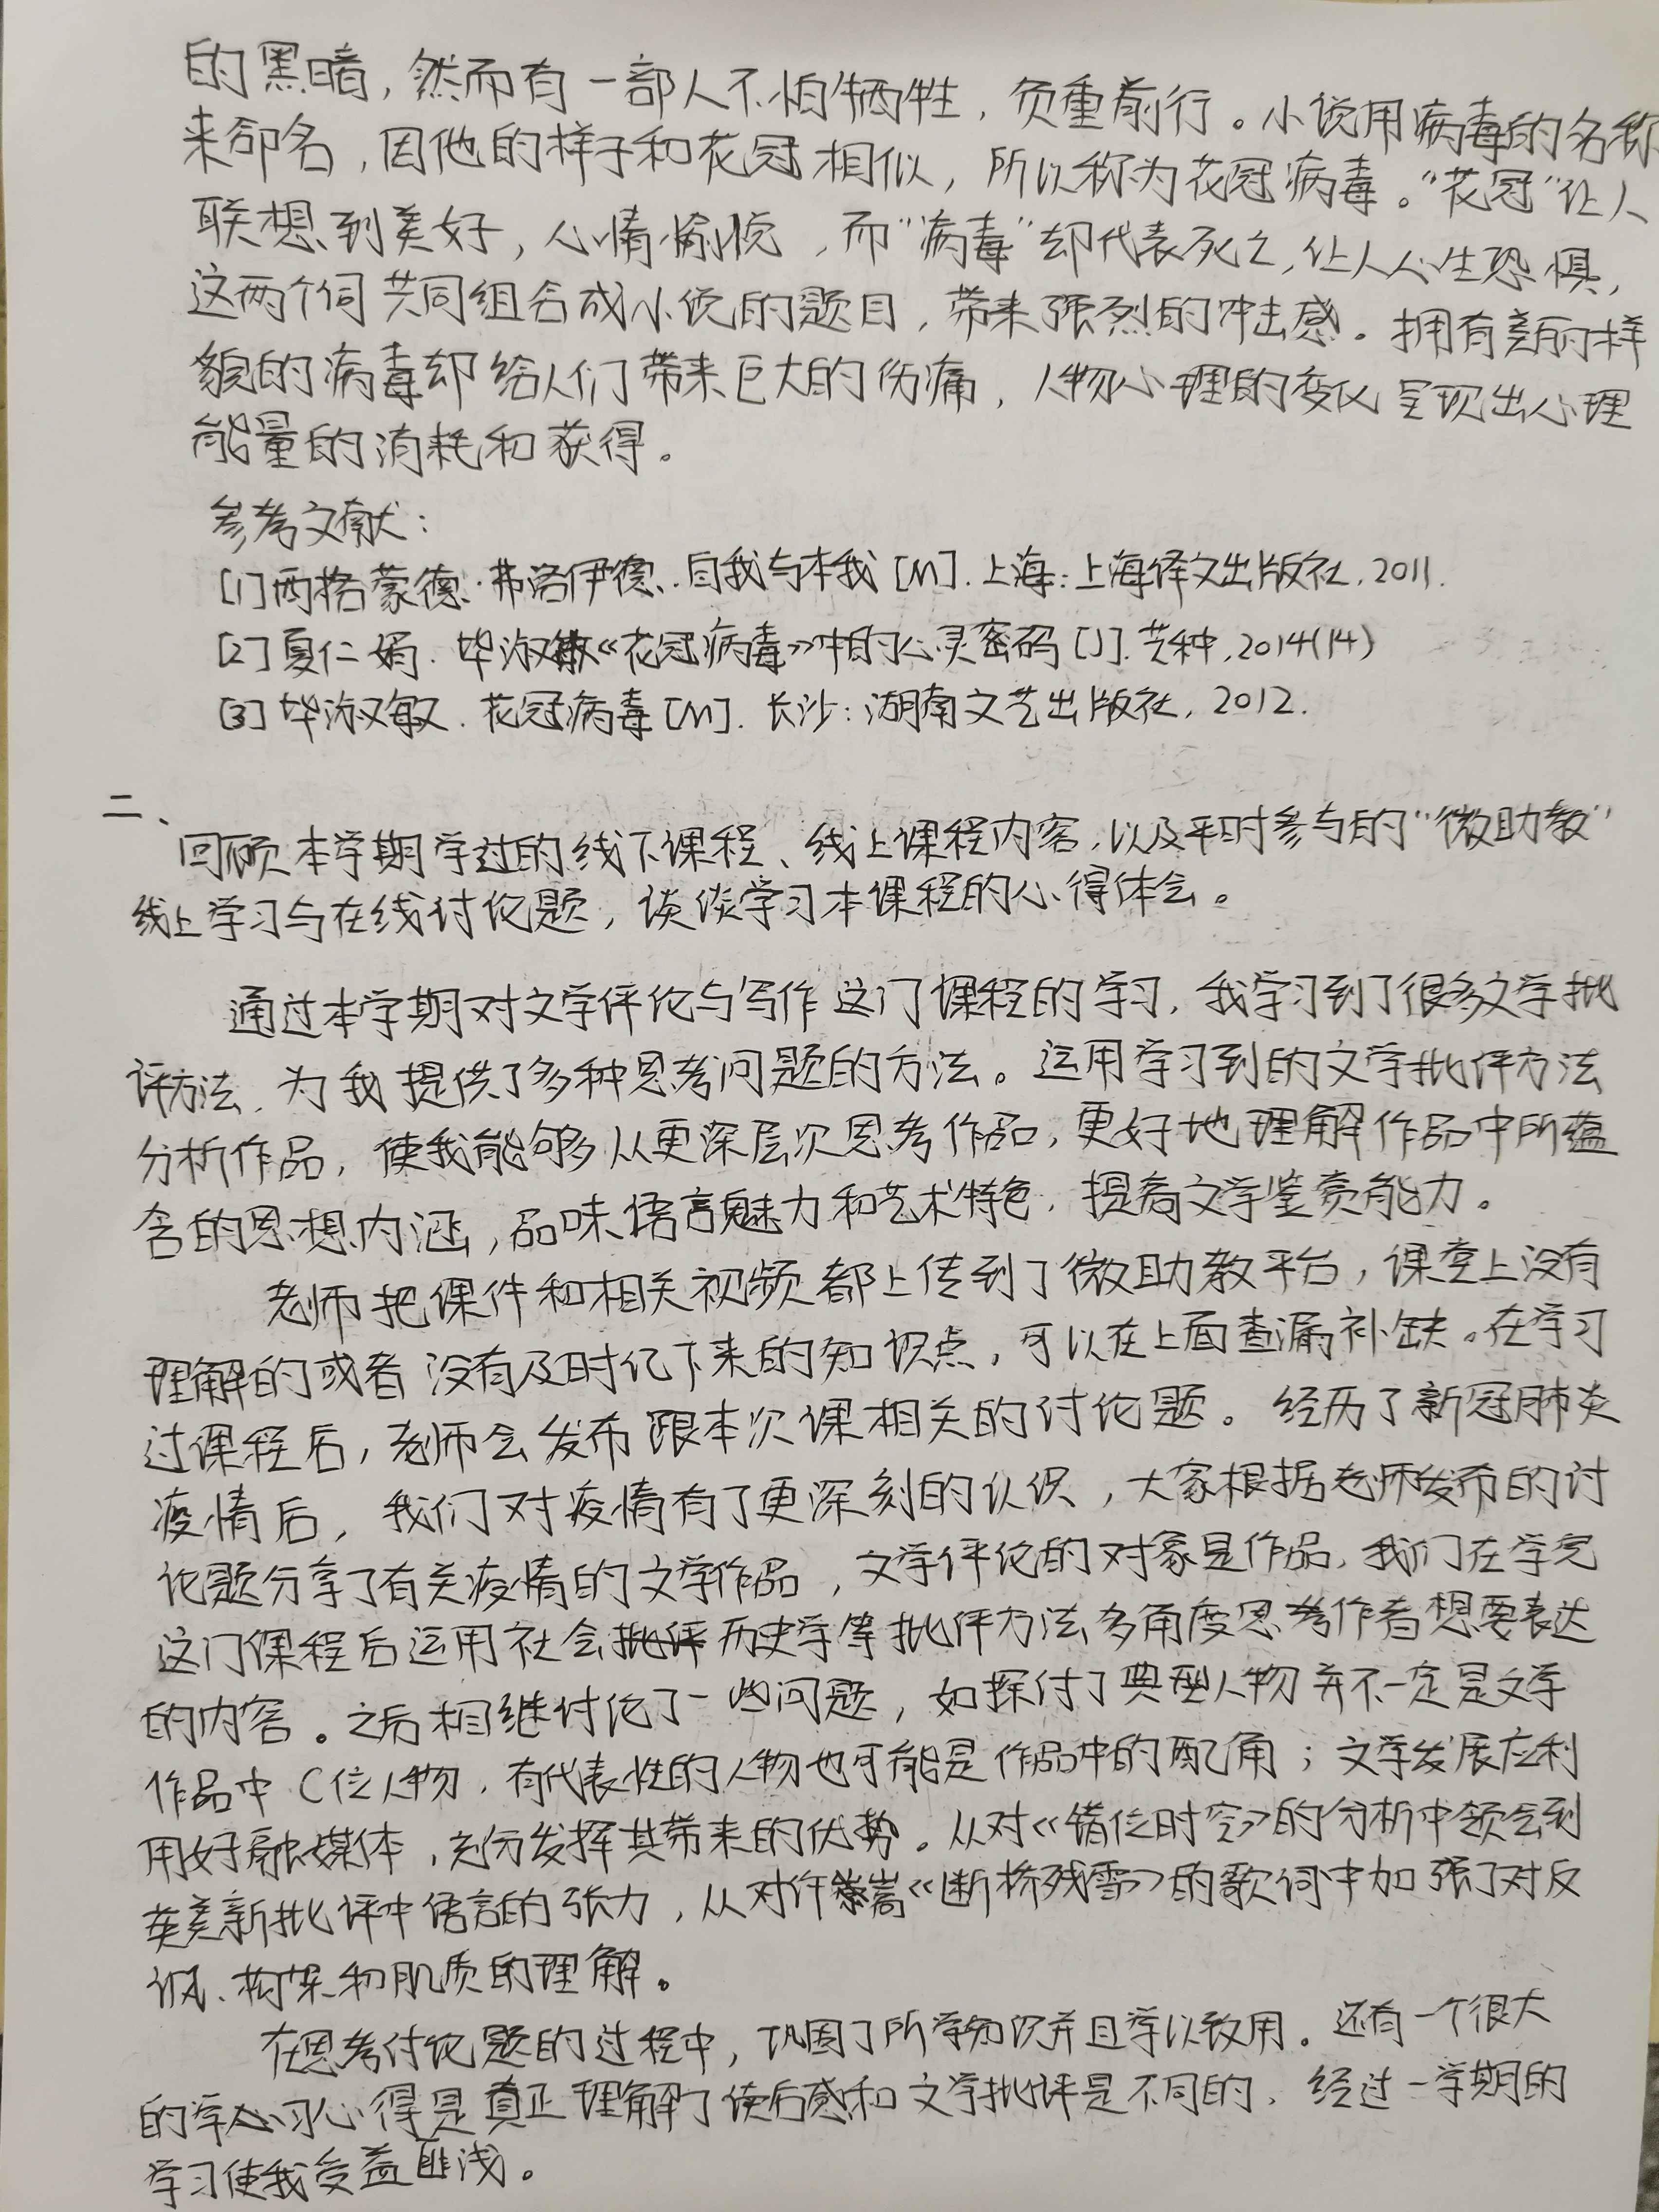 的黑暗，然而有一部人不怕牺牲，负重前行。小说用病毒的名称
来命名，因他的样子和花冠相似，所以称为花冠病毒。“花冠”让人
联想到美好，心情愉悦，而“病毒”却代表死亡，让人心生恐惧，
这两个词共同组合成小说的题目，带来强烈的冲击感。拥有美丽样
貌的病毒却给人们带来巨大的伤痛，人物心理的变化呈现出心理
能量的消耗和获得。
参考文献：
[1]西格蒙德·弗洛伊德.自我与本我[M].上海：上海译文出版社，2011.
[2]夏仁娟.毕淑敏《花冠病毒》中的心灵密码[J].芒种，2014(14)
[3]毕淑敏.花冠病毒[M].长沙：湖南文艺出版社，2012.
二、
回顾本学期学过的线下课程、线上课程内容，以及平时参与的“微助教”
线上学习与在线讨论题，谈谈学习本课程的心得体会。
通过本学期对文学评论与写作这门课程的学习，我学习到了很多文学批
评方法，为我提供了多种思考问题的方法。运用学习到的文学批评方法
分析作品，使我能够从更深层次思考作品，更好地理解作品中所蕴
含的思想内涵，品味语言魅力和艺术特色，提高文学鉴赏能力。
老师把课件和相关视频都上传到了微助教平台，课堂上没有
理解的或者没有及时记下来的知识点，可以在上面查漏补缺。在学习
过课程后，老师会发布跟本次课相关的讨论题。经历了新冠肺炎
疫情后，我们对疫情有了更深刻的认识，大家根据老师发布的讨
论题分享了有关疫情的文学作品，文学评论的对象是作品，我们在学完
这门课程后运用社会历史学等批评方法多角度思考作者想要表达
的内容。之后相继讨论了一些问题，如探讨了典型人物并不一定是文学
作品中C位人物，有代表性的人物也可能是作品中的配角；文学发展应利
用好融媒体，充分发挥其带来的优势。从对《错位时空》的分析中领会到
英美新批评中语言的张力，从对许嵩《断桥残雪》的歌词中加强了对反
讽、构架和肌质的理解。
在思考讨论题的过程中，巩固了所学知识并且学以致用。还有一个很大
的学习心得是真正理解了读后感和文学批评是不同的，经过一学期的
学习使我受益匪浅。